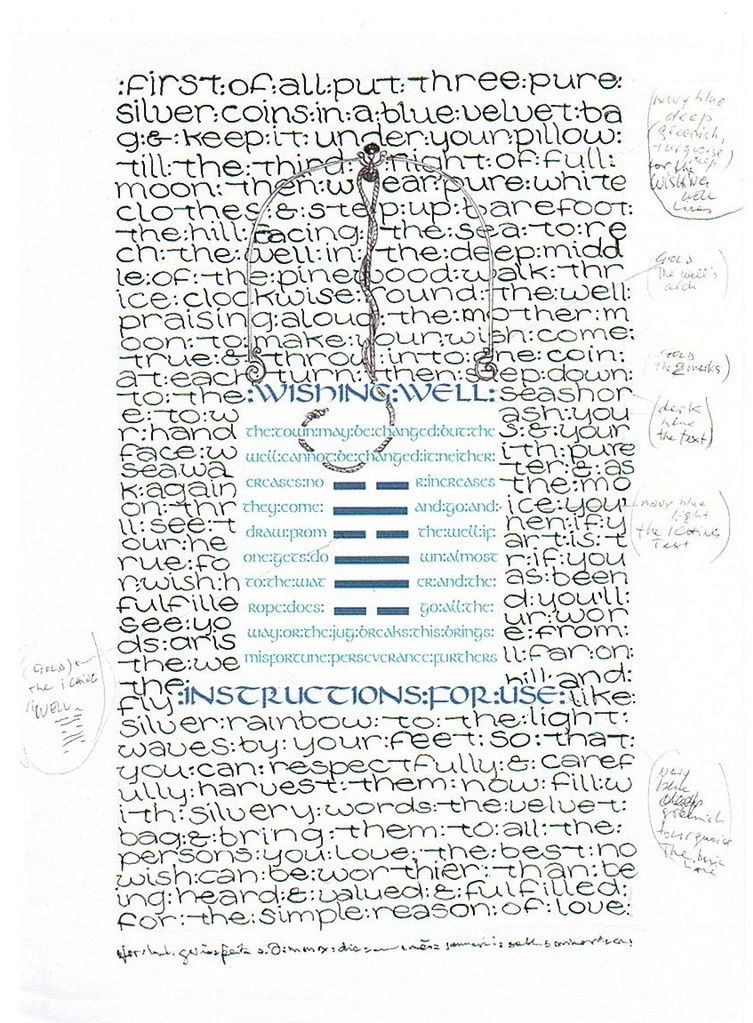 :first:of:all:put:three:pure:
silver:coins:in:a:blue:velvet:ba
g:&:keep:it:under:your:pillow:
till:the:third:night:of:full:
moon:then:wear:pure:white
clothes:&:step:up:barefoot:
the:hill:facing:the:sea:to:re
ch:the:well:in:the:deep:midd
le:of:the:pinewood:walk:thr
ice:clockwise:round:the:well:
praising:aloud:the:mother:m
oon:to:make:your:wish:come:
true:&:throw:in:to:one:coin:
at:each:turn:then:step:down:
to:the: seashor
e:to:w ash:you
r:hand s:&:your
face:w ith:pure
seawa ter:&:as
k:again the:mo
on:thr ice:your
ll:see:t hen:if:y
our:he art:is:t
rue:fo r:if:you
r:wish:h as:been
fulfille d:you'll:
see:yo ur:wor
ds:aris e:from:
the:we ll:far:on:
the: hill:and:
fly: like:
silver:rainbow:to:the:light:
waves:by:your:feet:so:that:
you:can:respectfully:&:caref
ully:harvest:them:now:fill:w
ith:silvery:words:the:velvet:
bag:&:bring:them:to:all:the:
persons:you:love:the:best:no
wish:can:be:worthier:than:be
ing:heard:&:valued:&:fulfilled:
for:the:simple:reason:of:love:
:WISHING:WELL:
the:town:may:be:changed:but:the
well:cannot:be:changed:it:neither:
creases:no r:increases
they:come: and:go:and:
draw:from the:well:if:
one:gets:do wn:almost
to:the:wat er:and:the:
rope:does: go:all:the:
way:or:the:jug:breaks:this:brings:
misfortune:perseverance:furthers
:INSTRUCTIONS:FOR:USE:
navy blue
deep
(greenish,
turquoise
for the
WISHING
well
lines
GOLD
the well's
arch
GOLD
(dark
blue
the text)
navy blue
light
the I CHING
text
(GOLD)
the I CHING
"WELL"
very
deep
greenish
tourquoise
the basic